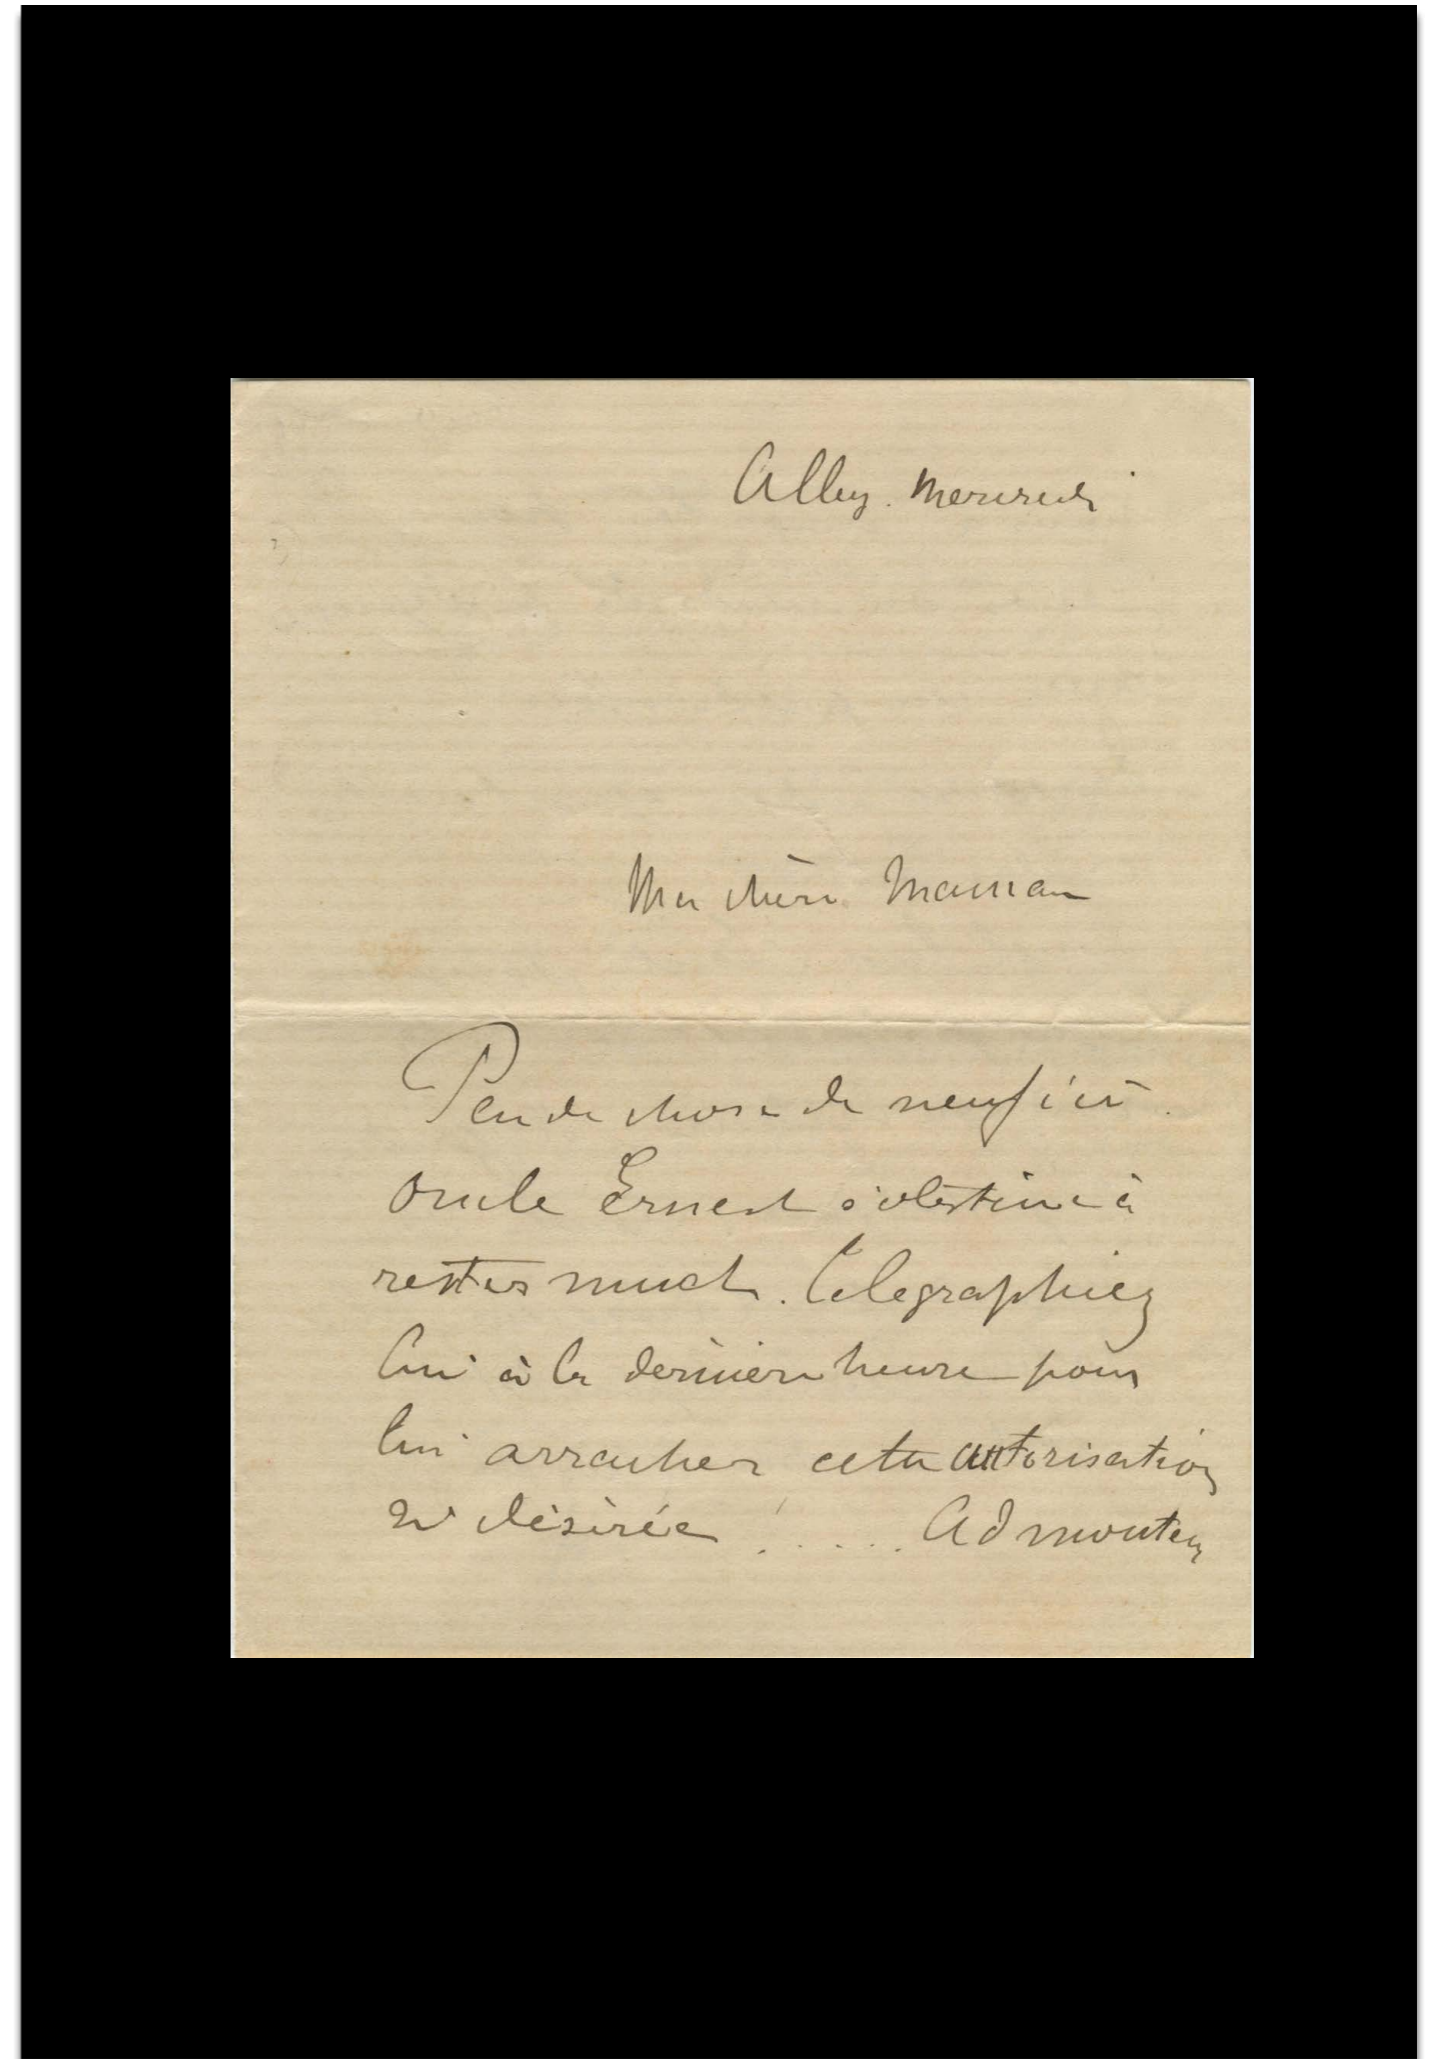 Alby. Mercredi
Ma chère Maman
Peu de chose de neuf ici
Oncle Ernest s'obstine à
rester muet. Télégraphiez
lui à la dernière heure pour
lui arracher cette autorisation
si désirée ! .....